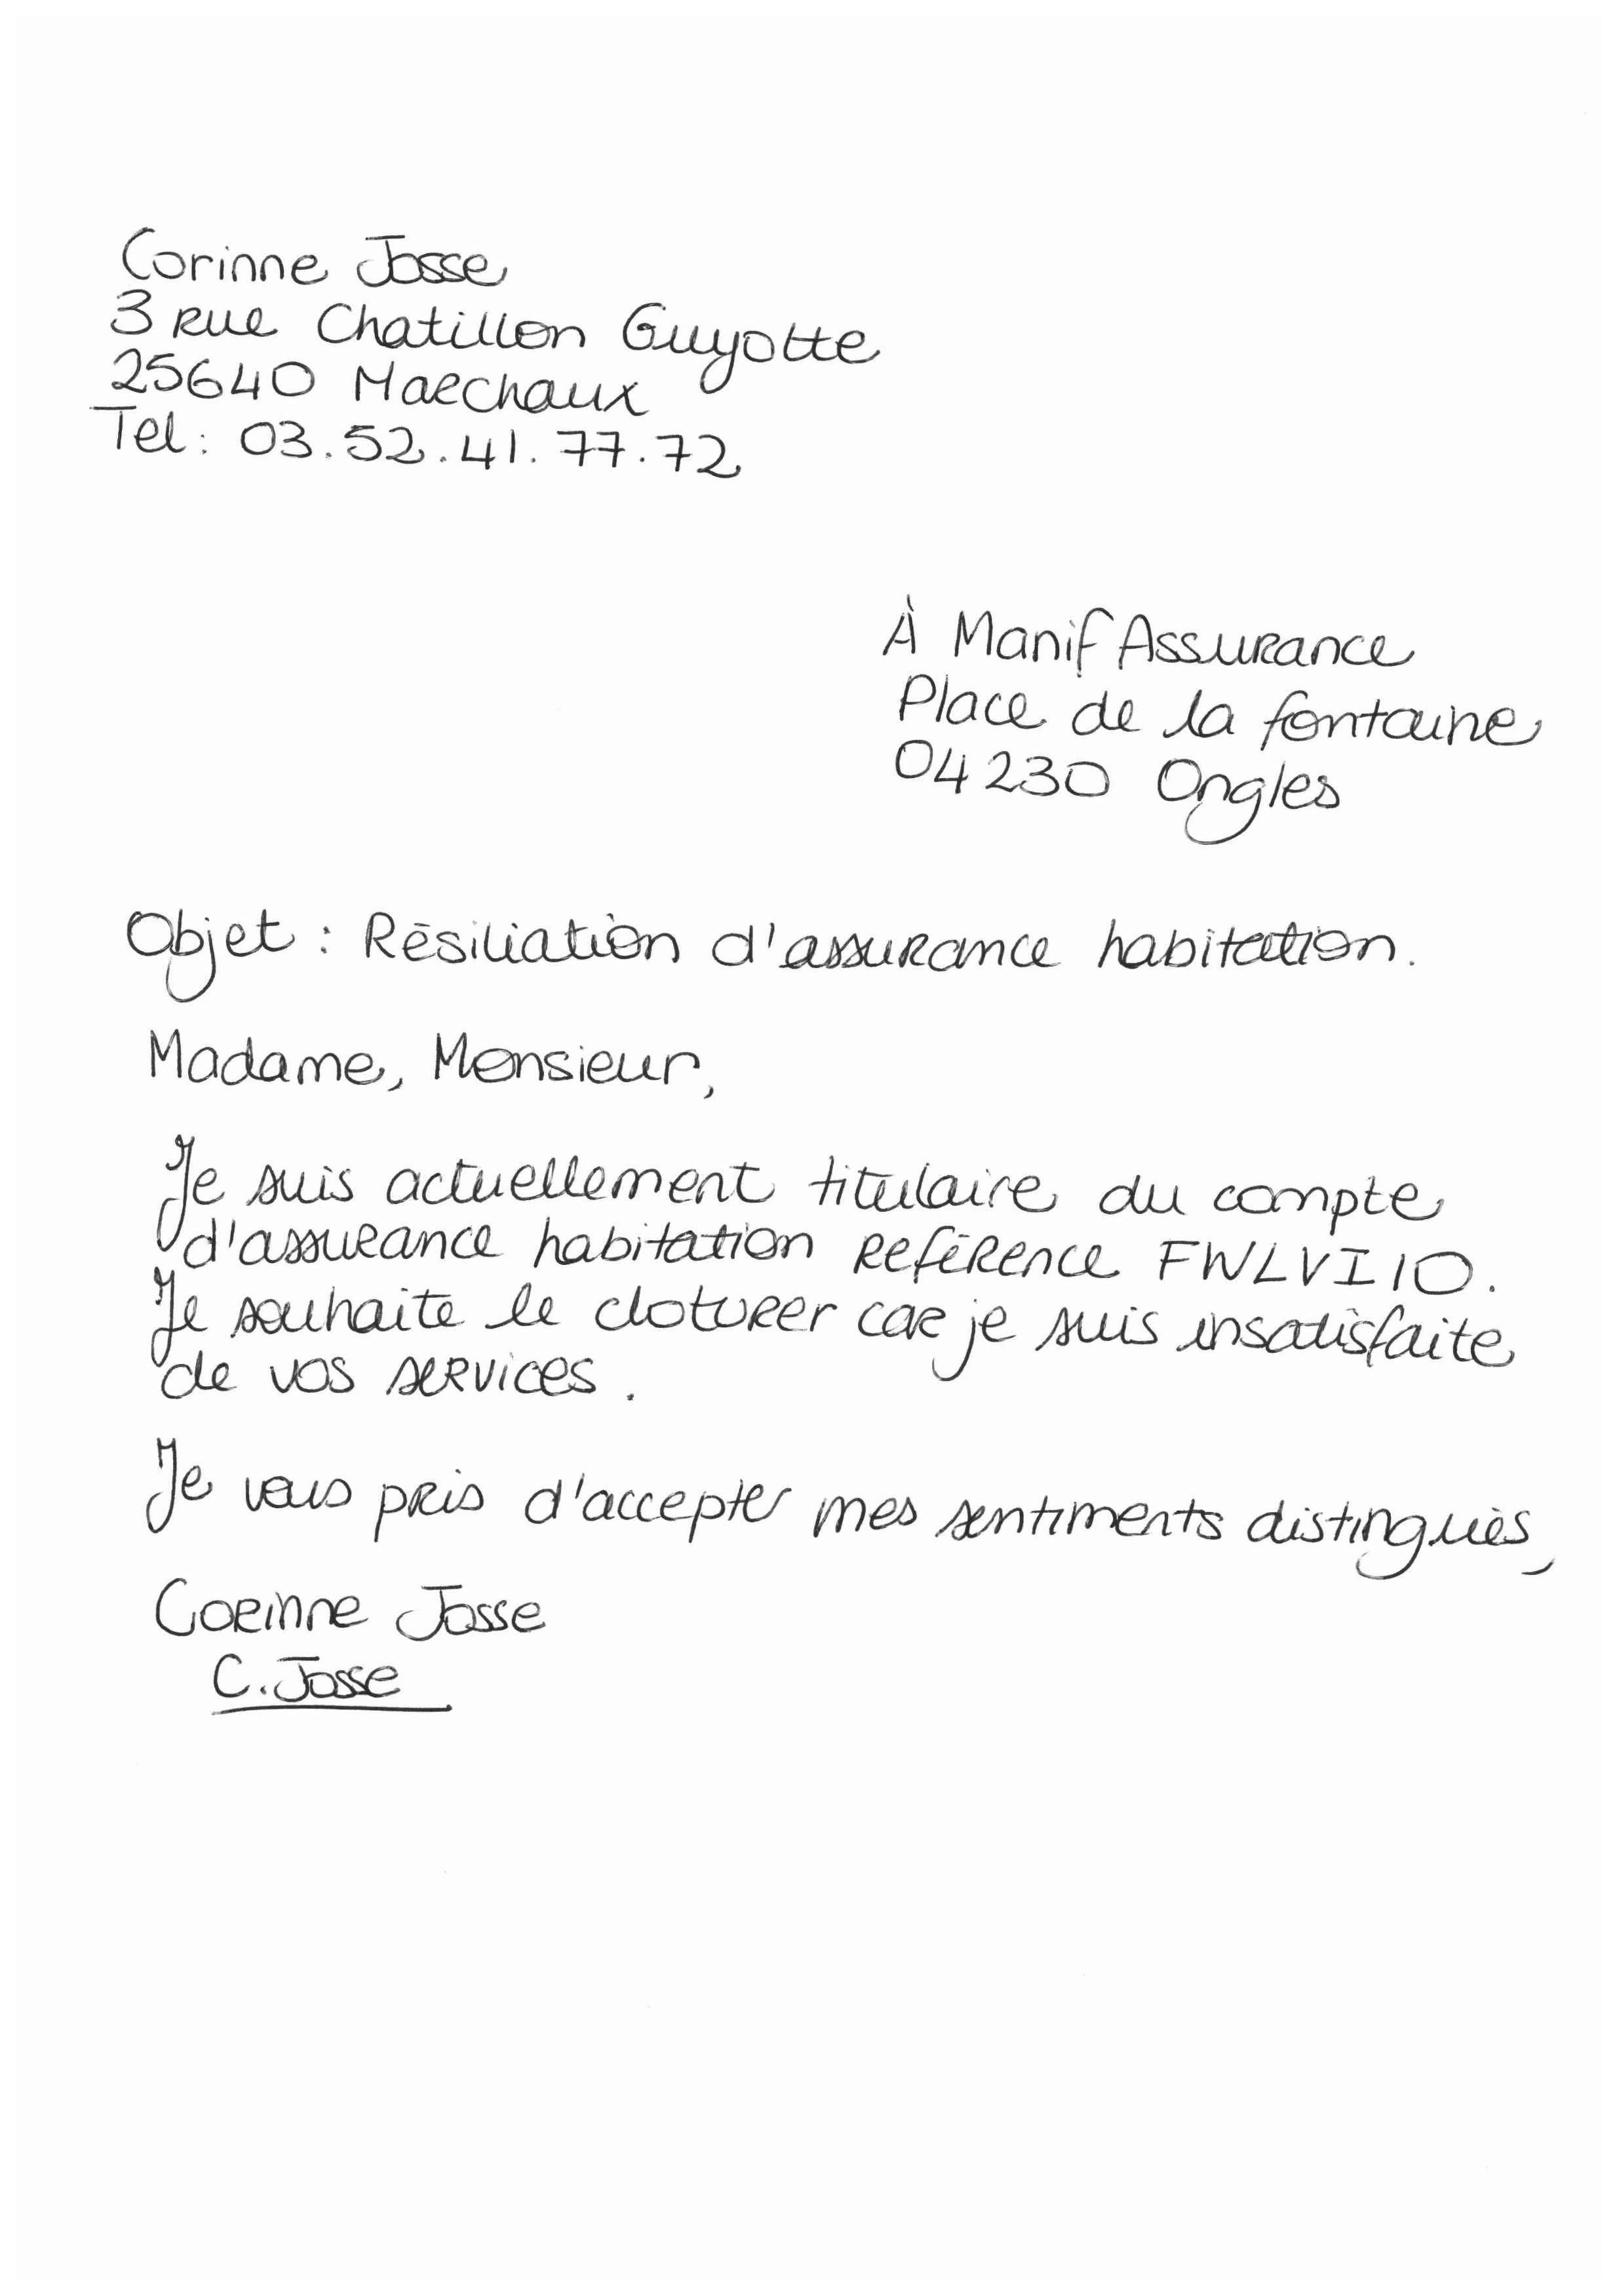 Corinne Josse
3 rue Chatillon Guyotte
25640 Marchaux
Tel : 03.52.41.77.72
À Manif Assurance
Place de la fontaine
04230 Ongles
Objet : Résiliation d'assurance habitation.
Madame, Monsieur,
Je suis actuellement titulaire du compte
d'assurance habitation référence FWLVI10.
Je souhaite le cloturer car je suis insatisfaite
de vos services.
Je vous pris d'accepter mes sentiments distingués,
Corinne Josse
C. Josse